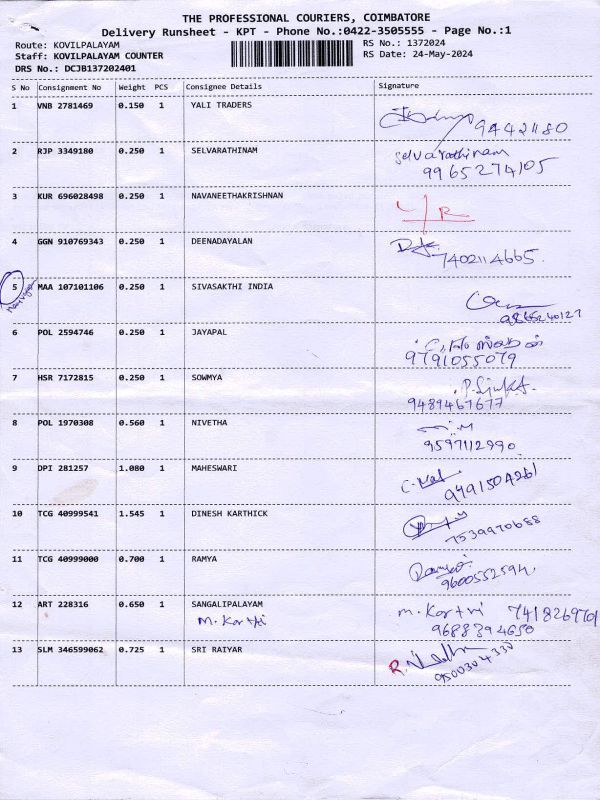 THE PROFESSIONAL COURIERS, COIMBATORE
Delivery Runsheet - KPT - Phone No.:0422-3505555 - Page No.:1
Route: KOVILPALAYAM RS No.: 1372024
Staff: KOVILPALAYAM COUNTER RS Date: 24-May-2024
DRS No.: DCJB137202401
S No Consignment No Weight PCS Consignee Details Signature
1 VNB 2781469 0.150 1 YALI TRADERS
94421180
2 RJP 3349180 0.250 1 SELVARATHINAM selvarathinam
9965274105
3 KUR 696028498 0.250 1 NAVANEETHAKRISHNAN
4 GGN 910769343 0.250 1 DEENADAYALAN
7402114665.
5 MAA 107101106 0.250 1 SIVASAKTHI INDIA
6 POL 2594746 0.250 1 JAYAPAL
9791055079
7 HSR 7172815 0.250 1 SOWMYA
9489467677
8 POL 1970308 0.560 1 NIVETHA
9597112990
9 DPI 281257 1.080 1 MAHESWARI
9791504261
10 TCG 40999541 1.545 1 DINESH KARTHICK
7539970688
11 TCG 40999000 0.700 1 RAMYA
9600552594.
12 ART 228316 0.650 1 SANGALIPALAYAM
M. Karthi M. Karthi
9688394650
13 SLM 346599062 0.725 1 SRI RAIYAR
9500304330